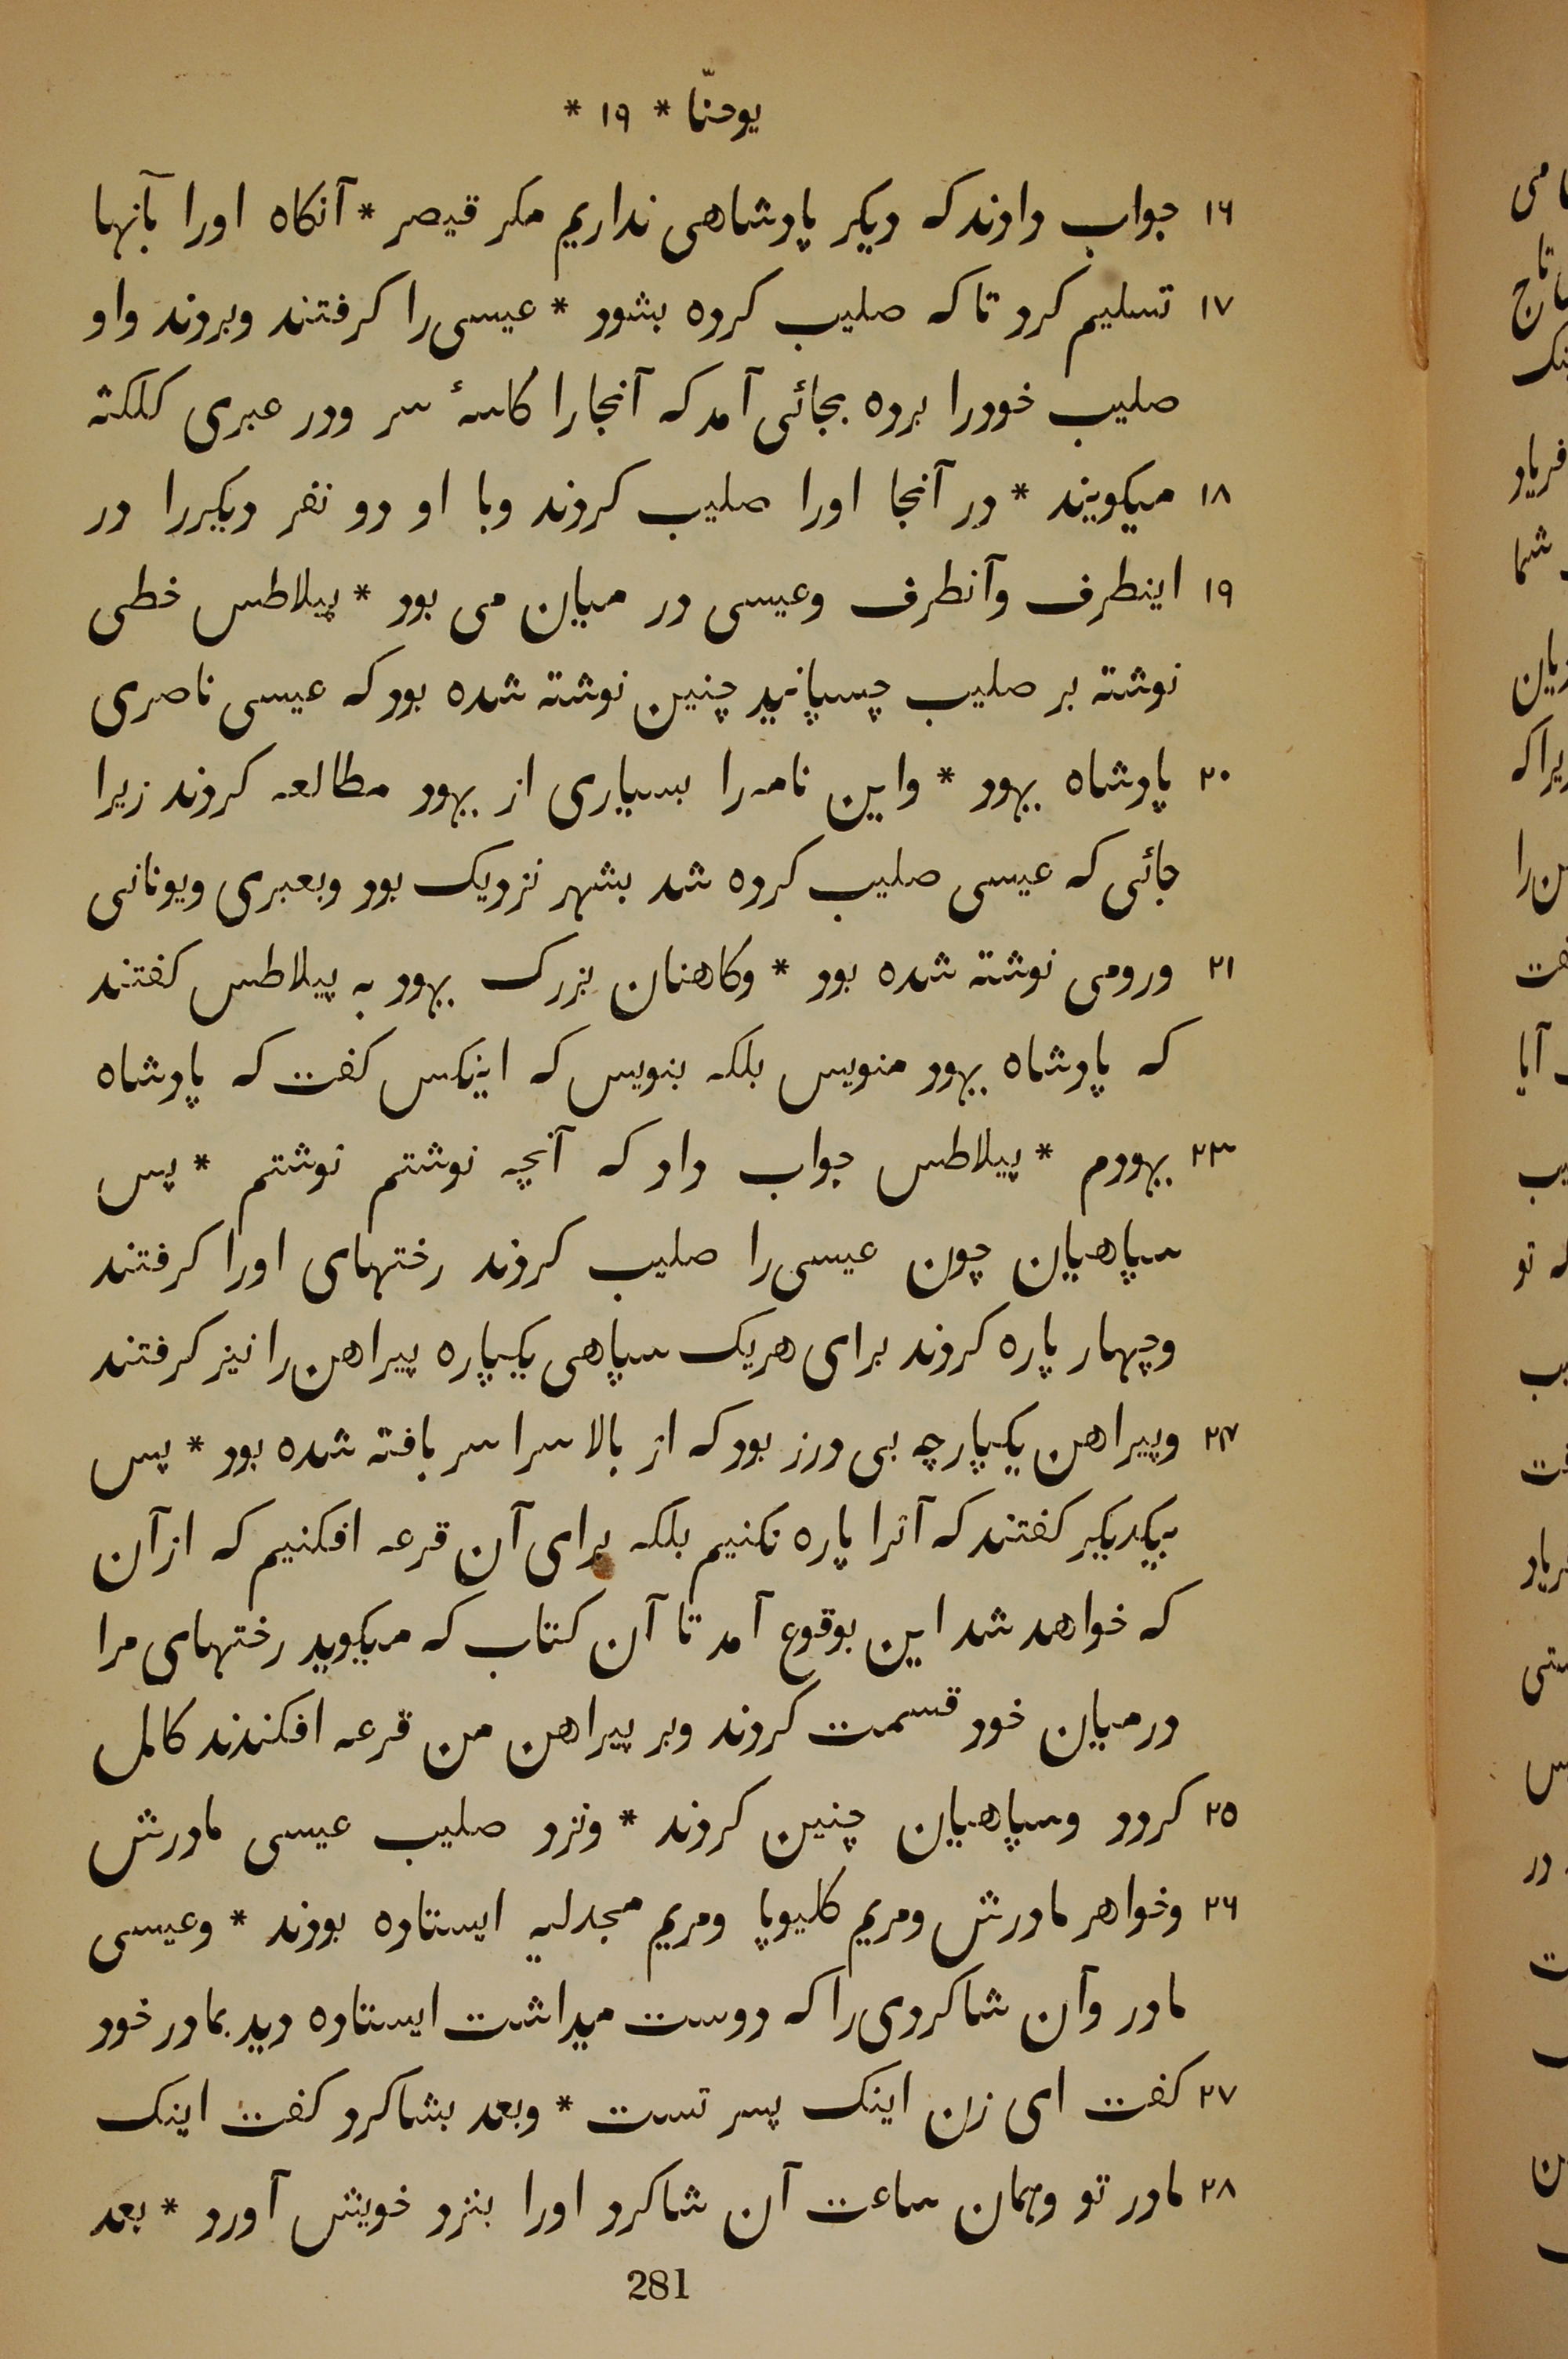 یوحنّا * ۱۹ *
۱۶ جواب دادند که دیکر پادشاهی نداریم مکر قیصر * آنکاه اورا بآنها
۱۷ تسلیم کرد تا که صلیب کرده بشود * عیسی را کرفتند وبردند واو
صلیب خودرا برده بجائی آمد که آنجا را کاسۀ سر ودر عبری کلکته
۱۸ میکویند * در آنجا اورا صلیب کردند وبا او دو نفر دیکررا در
۱۹ اینطرف وآنطرف وعیسی در میان می بود * پیلاطس خطی
نوشته بر صلیب چسپانید چنین نوشته شده بود که عیسی ناصری
۲۰ پادشاه یهود * واین نامه را بسیاری از یهود مطالعه کردند زیرا
جائی که عیسی صلیب کرده شد بشهر نزدیک بود وبعبری ویونانی
۲۱ ورومی نوشته شده بود * وکاهنان بزرک یهود به پیلاطس کفتند
که پادشاه یهود منویس بلکه بنویس که اینکس کفت که پادشاه
۲۳ یهودم * پیلاطس جواب داد که آنچه نوشتم نوشتم * پس
سپاهیان چون عیسی را صلیب کردند رختهای اورا کرفتند
وچهار پاره کردند برای هریک سپاهی یکپاره پیراهن را نیز کرفتند
۲۴ وپیراهن یکپارچه بی درز بود که از بالا سرا سر بافته شده بود * پس
بیکدیکر کفتند که آنرا پاره نکنیم بلکه برای آن قرعه افکنیم که ازآن
که خواهد شد این بوقوع آمد تا آن کتاب که میکوید رختهای مرا
درمیان خود قسمت کردند وبر پیراهن من قرعه افکندند کامل
۲۵ کردد وسپاهیان چنین کردند * ونزد صلیب عیسی مادرش
۲۶ وخواهر مادرش ومریم کلیوپا ومریم مجدلیه ایستاده بودند * وعیسی
مادر وآن شاکردی را که دوست میداشت ایستاده دید بمادر خود
۲۷ کفت ای زن اینک پسر تست * وبعد بشاکرد کفت اینک
۲۸ مادر تو وهمان ساعت آن شاکرد اورا بنزد خویش آورد * بعد
281